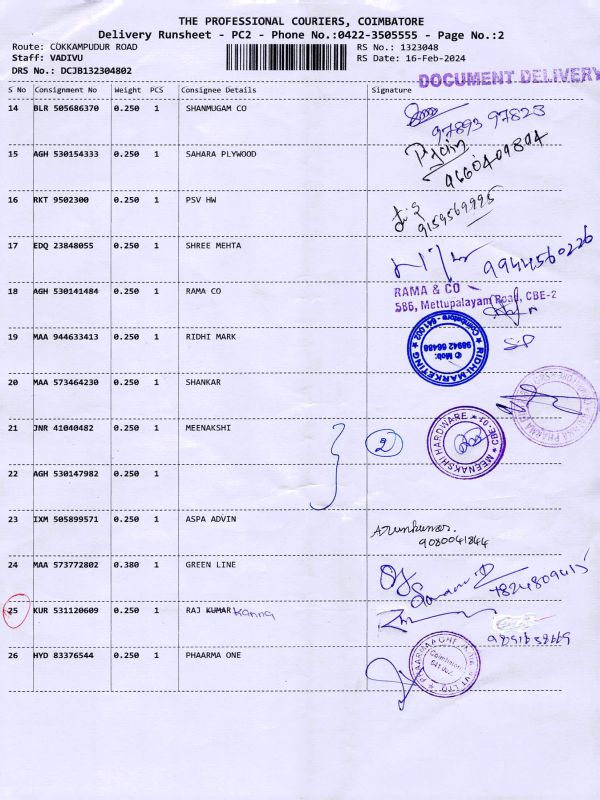 THE PROFESSIONAL COURIERS, COIMBATORE
Delivery Runsheet - PC2 - Phone No.:0422-3505555 - Page No.:2
Route: COKKAMPUDUR ROAD RS No.: 1323048
Staff: VADIVU RS Date: 16-Feb-2024
DRS No.: DCJB132304802
DOCUMENT DELIVERY
S No Consignment No Weight PCS Consignee Details Signature
14 BLR 505686370 0.250 1 SHANMUGAM CO
97893 97823
15 AGH 530154333 0.250 1 SAHARA PLYWOOD
9660409804
16 RKT 9502300 0.250 1 PSV HW
9159569995
17 EDQ 23848055 0.250 1 SHREE MEHTA
9944560226
18 AGH 530141484 0.250 1 RAMA CO
RAMA & CO
586, Mettupalayam Road, CBE-2
19 MAA 944633413 0.250 1 RIDHI MARK
RIDHI MARKETING
Coimbatore - 641 002
Mob:
98942 66488
SP
20 MAA 573464230 0.250 1 SHANKAR
21 JNR 41040482 0.250 1 MEENAKSHI
2
MEENAKSHI HARDWARE CBE-01
22 AGH 530147982 0.250 1
23 IXM 505899571 0.250 1 ASPA ADVIN
Arunkumar.
9080041844
24 MAA 573772802 0.380 1 GREEN LINE
7824809415
25 KUR 531120609 0.250 1 RAJ KUMAR Kanna
26 HYD 83376544 0.250 1 PHAARMA ONE